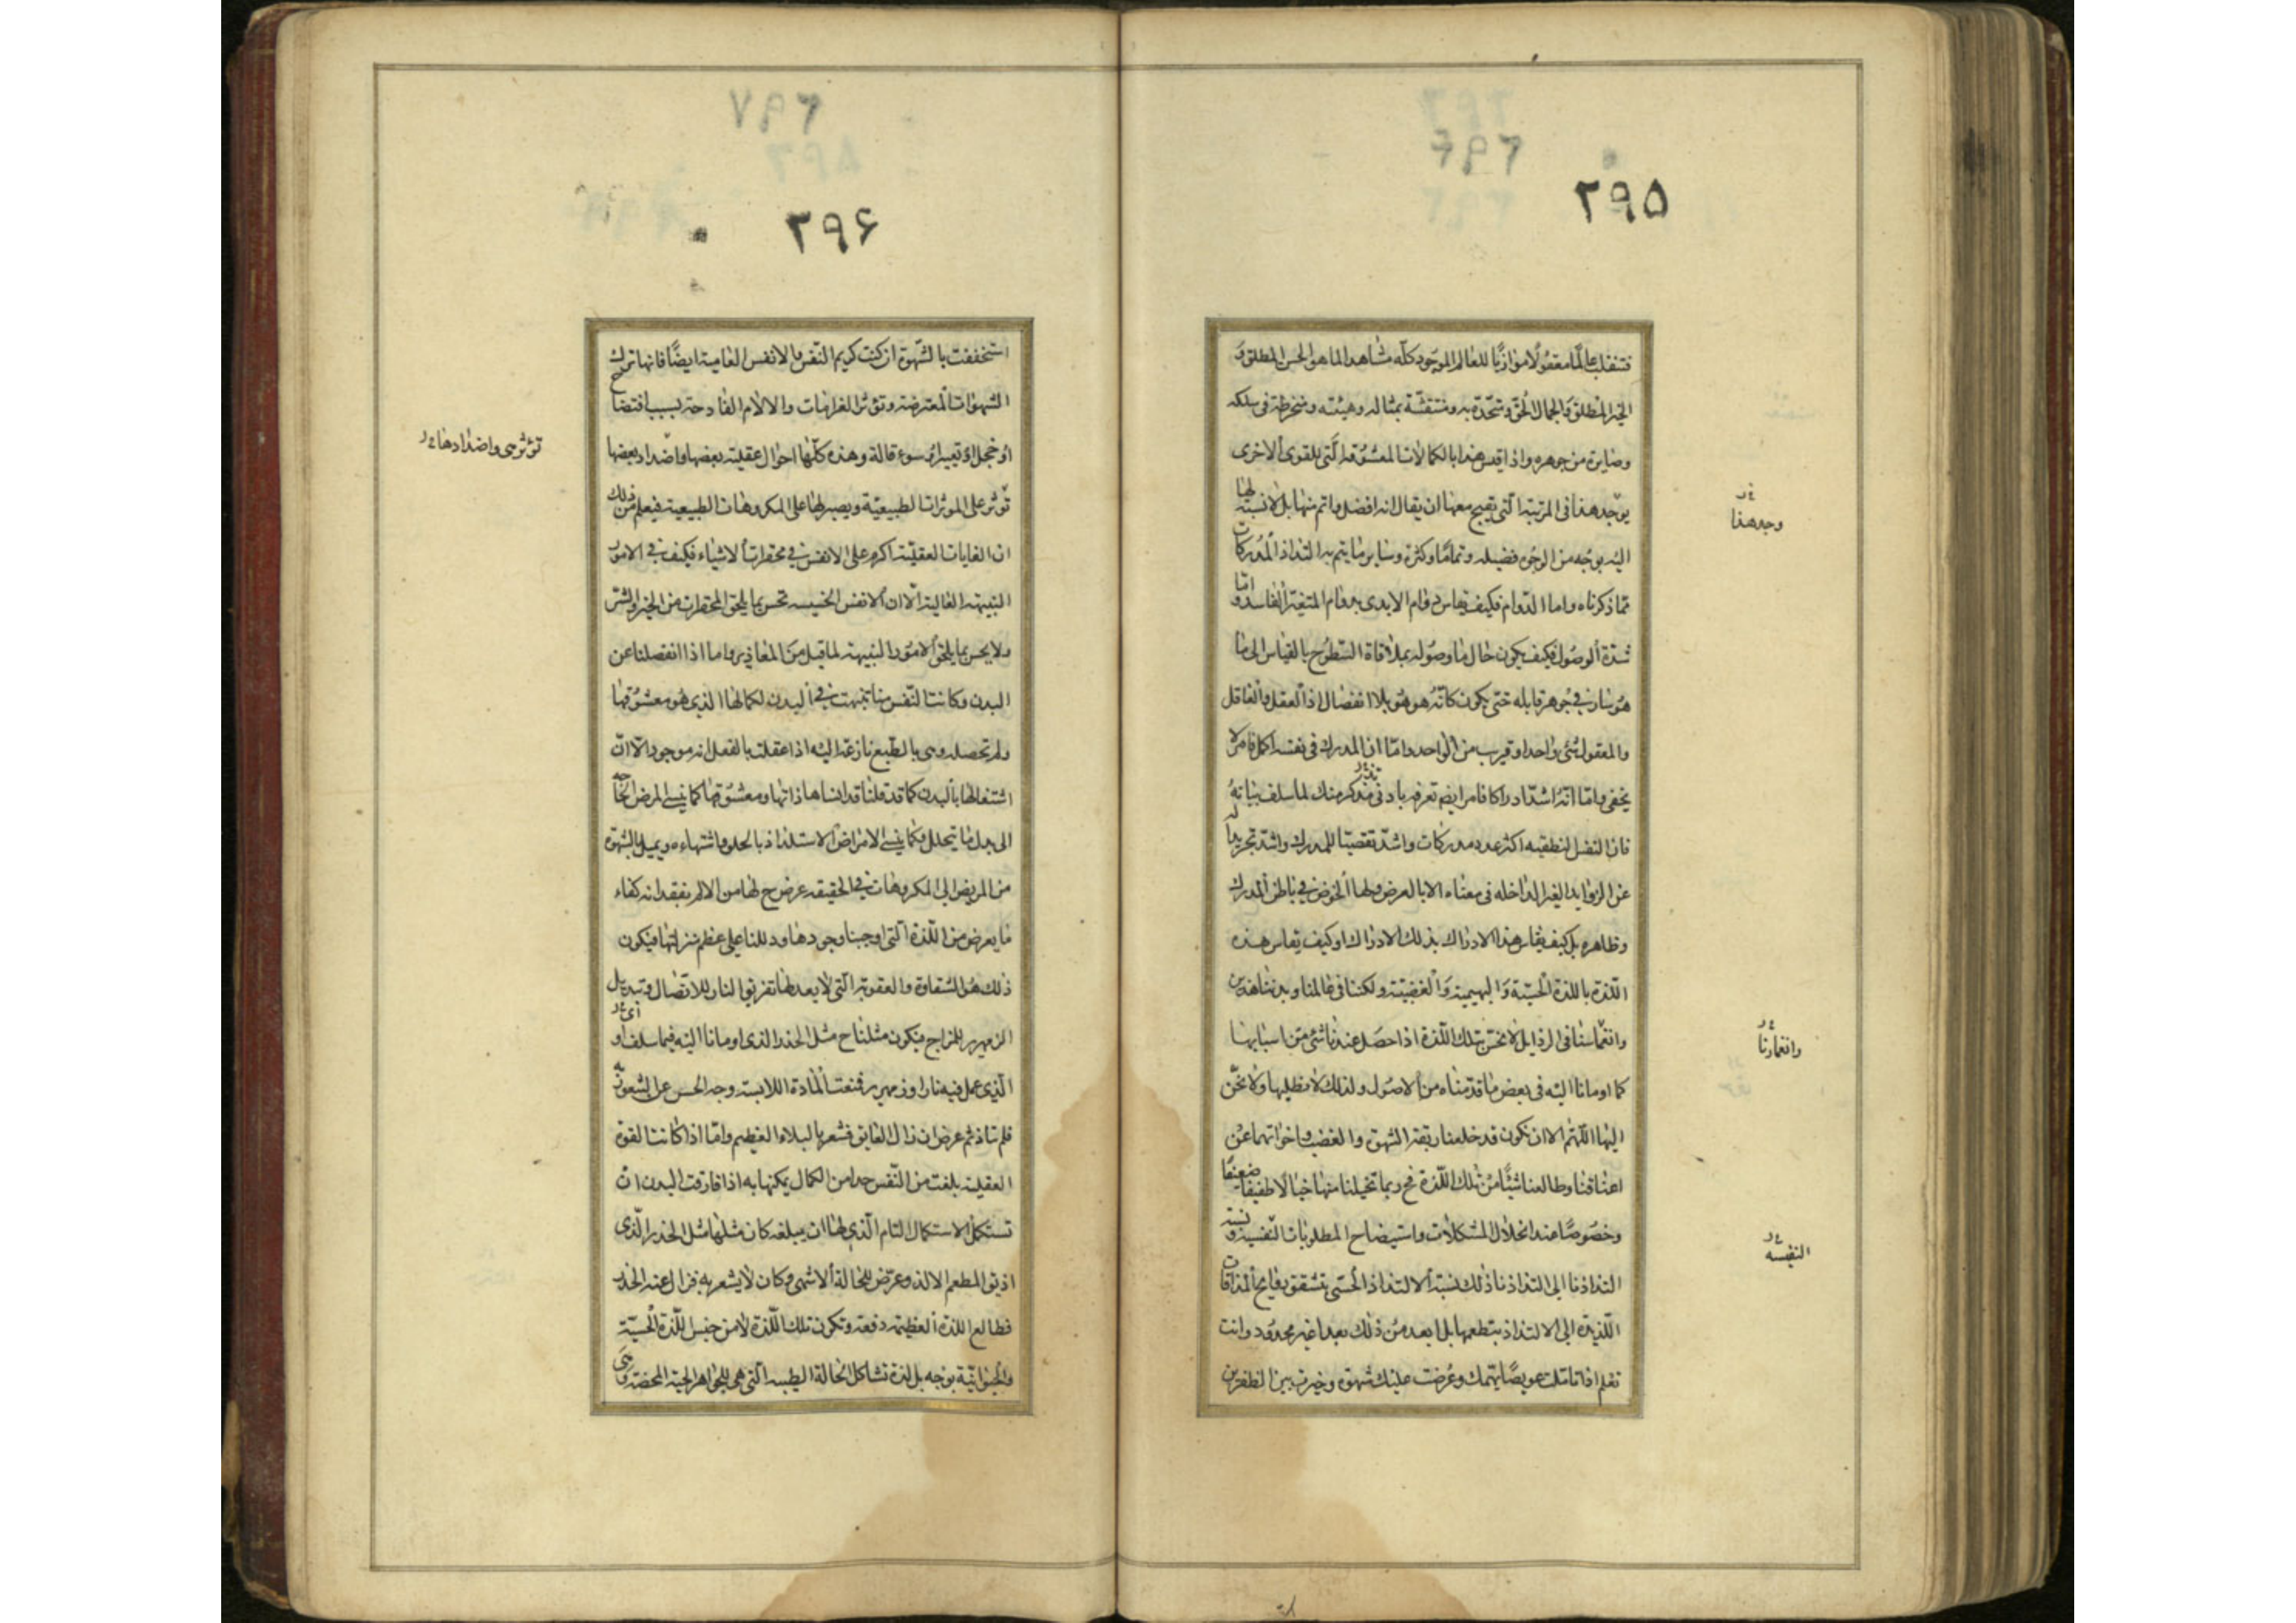 ۲۹۵
فتنقلب عالما معقولا موازيا للعالم الموجود كله مشاهدا لما هو الحسن المطلق و
الخير المطلق والجمال الحق ومتحدة به ومنتقشة بمثاله وهيئته ومنخرطة فى سلكه
وصايرة من جوهره واذا قيس هذا بالكمالات المعشوقة التى للقوى الاخرى
يوجد هذا فى المرتبة التى يقبح معها ان يقال انه افضل واتم منها بل لا نسبة لها
اليه بوجه من الوجوه فضيلة وتماما وكثرة وساير ما يتم به التذاذ المدركات
مما ذكرناه واما الدوام فكيف يقاس دوام الابدى بدوام المتغير الفاسد واما
شدة الوصول فكيف يكون حال ما وصوله بملاقاة السطوح بالقياس الى ما
هو سار فى جوهر قابله حتى يكون كانه هو هو بلا انفصال اذ العقل والعاقل
والمعقول شئ واحد او قريب من الواحد واما ان المدرك فى نفسه اكمل فامر لا
يخفى واما انه اشد ادراكا فامر ايضم تعرفه بادنى تذكر منك لما سلف بيانه
فان النفس النطقيه اكثر عدد مدركات واشد تقصيا للمدرك واشد تجريدا له
عن الزوايد الغير الداخله فى معناه الا بالعرض ولها الخوض فى باطن المدرك
وظاهره بل كيف يقاس هذا الادراك بذلك الادراك او كيف يقاس هذه
اللذة باللذة الحسية والبهيمية والغضبية ولكننا فى عالمنا وبدننا هذين
وانغماسنا فى الرذايل لا نحس بتلك اللذة اذا حصل عندنا شئ من اسبابها
كما اومانا اليه فى بعض ما قدمناه من الاصول ولذلك لا نطلبها ولا نحن
اليها اللهم الا ان نكون قد خلعنا ربقة الشهوة والغضب واخواتهما عن
اعناقنا وطالعنا شيئا من تلك اللذة فح ربما تخيلنا منها خيالا طفيفا ضعيفا
وخصوصا عند انحلال المشكلات واستيضاح المطلوبات النفسية ونسبة
التذاذنا الى التذاذنا ذلك نسبة الالتذاذ الحسى بتنشق روايح المذاقات
اللذيذة الى الالتذاذ بتطعمها بل ابعد من ذلك بعدا غير محدود وانت
تعلم اذا تاملت عويصا يهمك وعرضت عليك شهوة وخيرت بين الظفرين
وجد هذا
وانغمارنا
النفيسه
۲۹۶
استخففت بالشهوة ان كنت كريم النفس والانفس العامية ايضا فانها تترك
الشهوات المعترضة وتؤثر الغرامات والالام الفادحة بسبب افتضاح
او خجل او تعيير او سوء قالة وهذه كلها احوال عقلية بعضها واضداد بعضها
تؤثر على المؤثرات الطبيعية ويصبر لها على المكروهات الطبيعية فيعلم من ذلك
ان الغايات العقلية اكرم على الانفس فى محقرات الاشياء فكيف فى الامور
النبيهة العالية الا ان الانفس الخسيسه تحس بما يلحق المحقرات من الخير والشر
ولا يحس بما يلحق الامور النبيهة لما قيل من المعاذير واما اذا انفصلنا عن
البدن وكانت النفس منا تنبهت فى البدن لكمالها الذى هو معشوقها
ولم تحصله وهى بالطبع نازعة اليه اذا عقلت بالفعل انه موجود الا ان
اشتغالها بالبدن كما قد قلنا قد انساها ذاتها ومعشوقها كما ينسى المرض الحاجة
الى بدل ما يتحلل وكما ينسى الامراض الاستلذاذ بالحلو واشتهاءه ويميل بالشهوة
من المريض الى المكروهات فى الحقيقه عرض ح لها من الالم بفقدانه كفاء
ما يعرض من اللذة التى اوجبنا وجودها ودللنا على عظم منزلتها فيكون
ذلك هو الشقاوة والعقوبة التى لا يعدلها تفريق النار للاتصال وتبديل
الزمهرير للمزاج فيكون مثلنا ح مثل الخدر الذى اومانا اليه فيما سلف او
الذى عمل فيه نار او زمهرير فمنعت المادة اللابسة وجه الحس عن الشعور به
فلم يتاذ ثم عرض ان زال العايق فشعر بالبلاء العظيم واما اذا كانت القوة
العقلية بلغت من النفس حدا من الكمال يمكنها به اذا فارقت البدن ان
تستكمل الاستكمال التام الذى لها ان يبلغه كان مثلها مثل الخدر الذى
اذيق المطعم الالذ وعرض للحالة الاشهى وكان لا يشعر به فزال عنه الخدر
فطالع اللذة العظيمه دفعة وتكون تلك اللذة لا من جنس اللذة الحسية
والحيوانية بوجه بل لذة تشاكل الحالة الطيبه التى هى للجواهر الحية المحضة وهى
تؤثر هى واضدادها